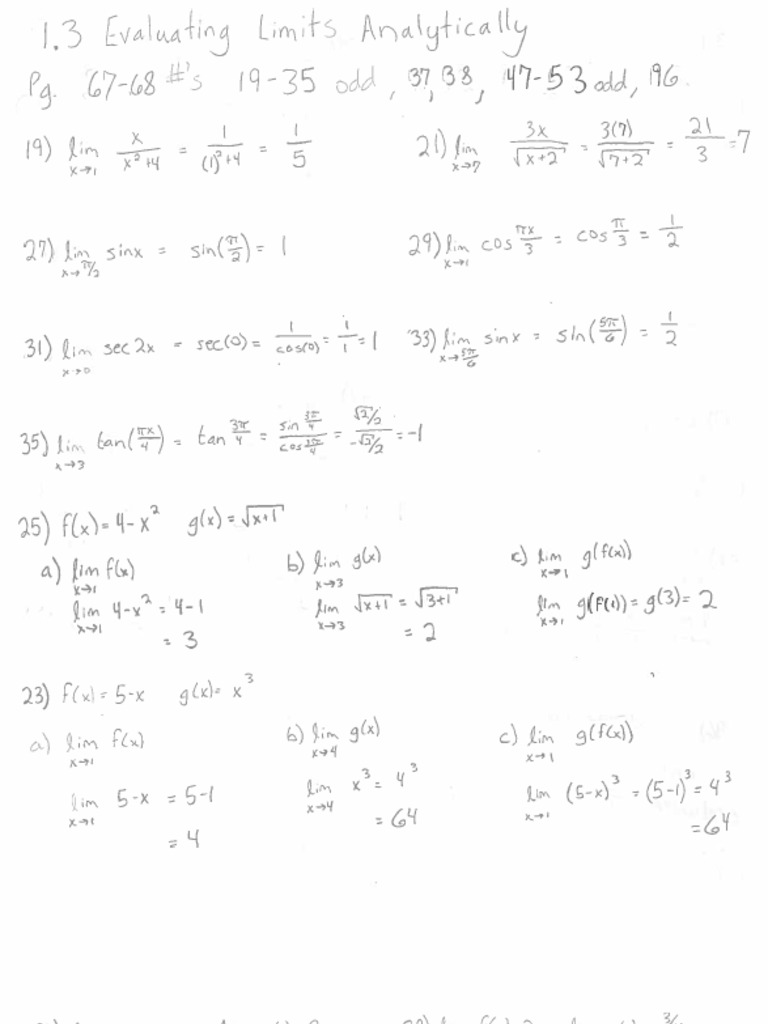 1.3 Evaluating Limits Analytically
Pg. 67-68 #'s 19-35 odd, 37, 38, 47-53 odd, 96
19) lim x→1 x/(x²+4) = 1/((1)²+4) = 1/5
21) lim x→7 3x/√(x+2) = 3(7)/√(7+2) = 21/3 = 7
27) lim x→π/2 sinx = sin(π/2) = 1
29) lim x→1 cos πx/3 = cos π/3 = 1/2
31) lim x→0 sec2x = sec(0) = 1/cos(0) = 1/1 = 1
33) lim x→5π/6 sinx = sin(5π/6) = 1/2
35) lim x→3 tan(πx/4) = tan 3π/4 = sin 3π/4 / cos 3π/4 = √2/2 / -√2/2 = -1
25) f(x) = 4-x² g(x) = √(x+1)
a) lim x→1 f(x)
lim x→1 4-x² = 4-1
= 3
b) lim x→3 g(x)
lim x→3 √(x+1) = √(3+1)
= 2
c) lim x→1 g(f(x))
lim x→1 g(f(1)) = g(3) = 2
23) f(x) = 5-x g(x) = x³
a) lim x→1 f(x)
lim x→1 5-x = 5-1
= 4
b) lim x→4 g(x)
lim x→4 x³ = 4³
= 64
c) lim x→1 g(f(x))
lim x→1 (5-x)³ = (5-1)³ = 4³
= 64